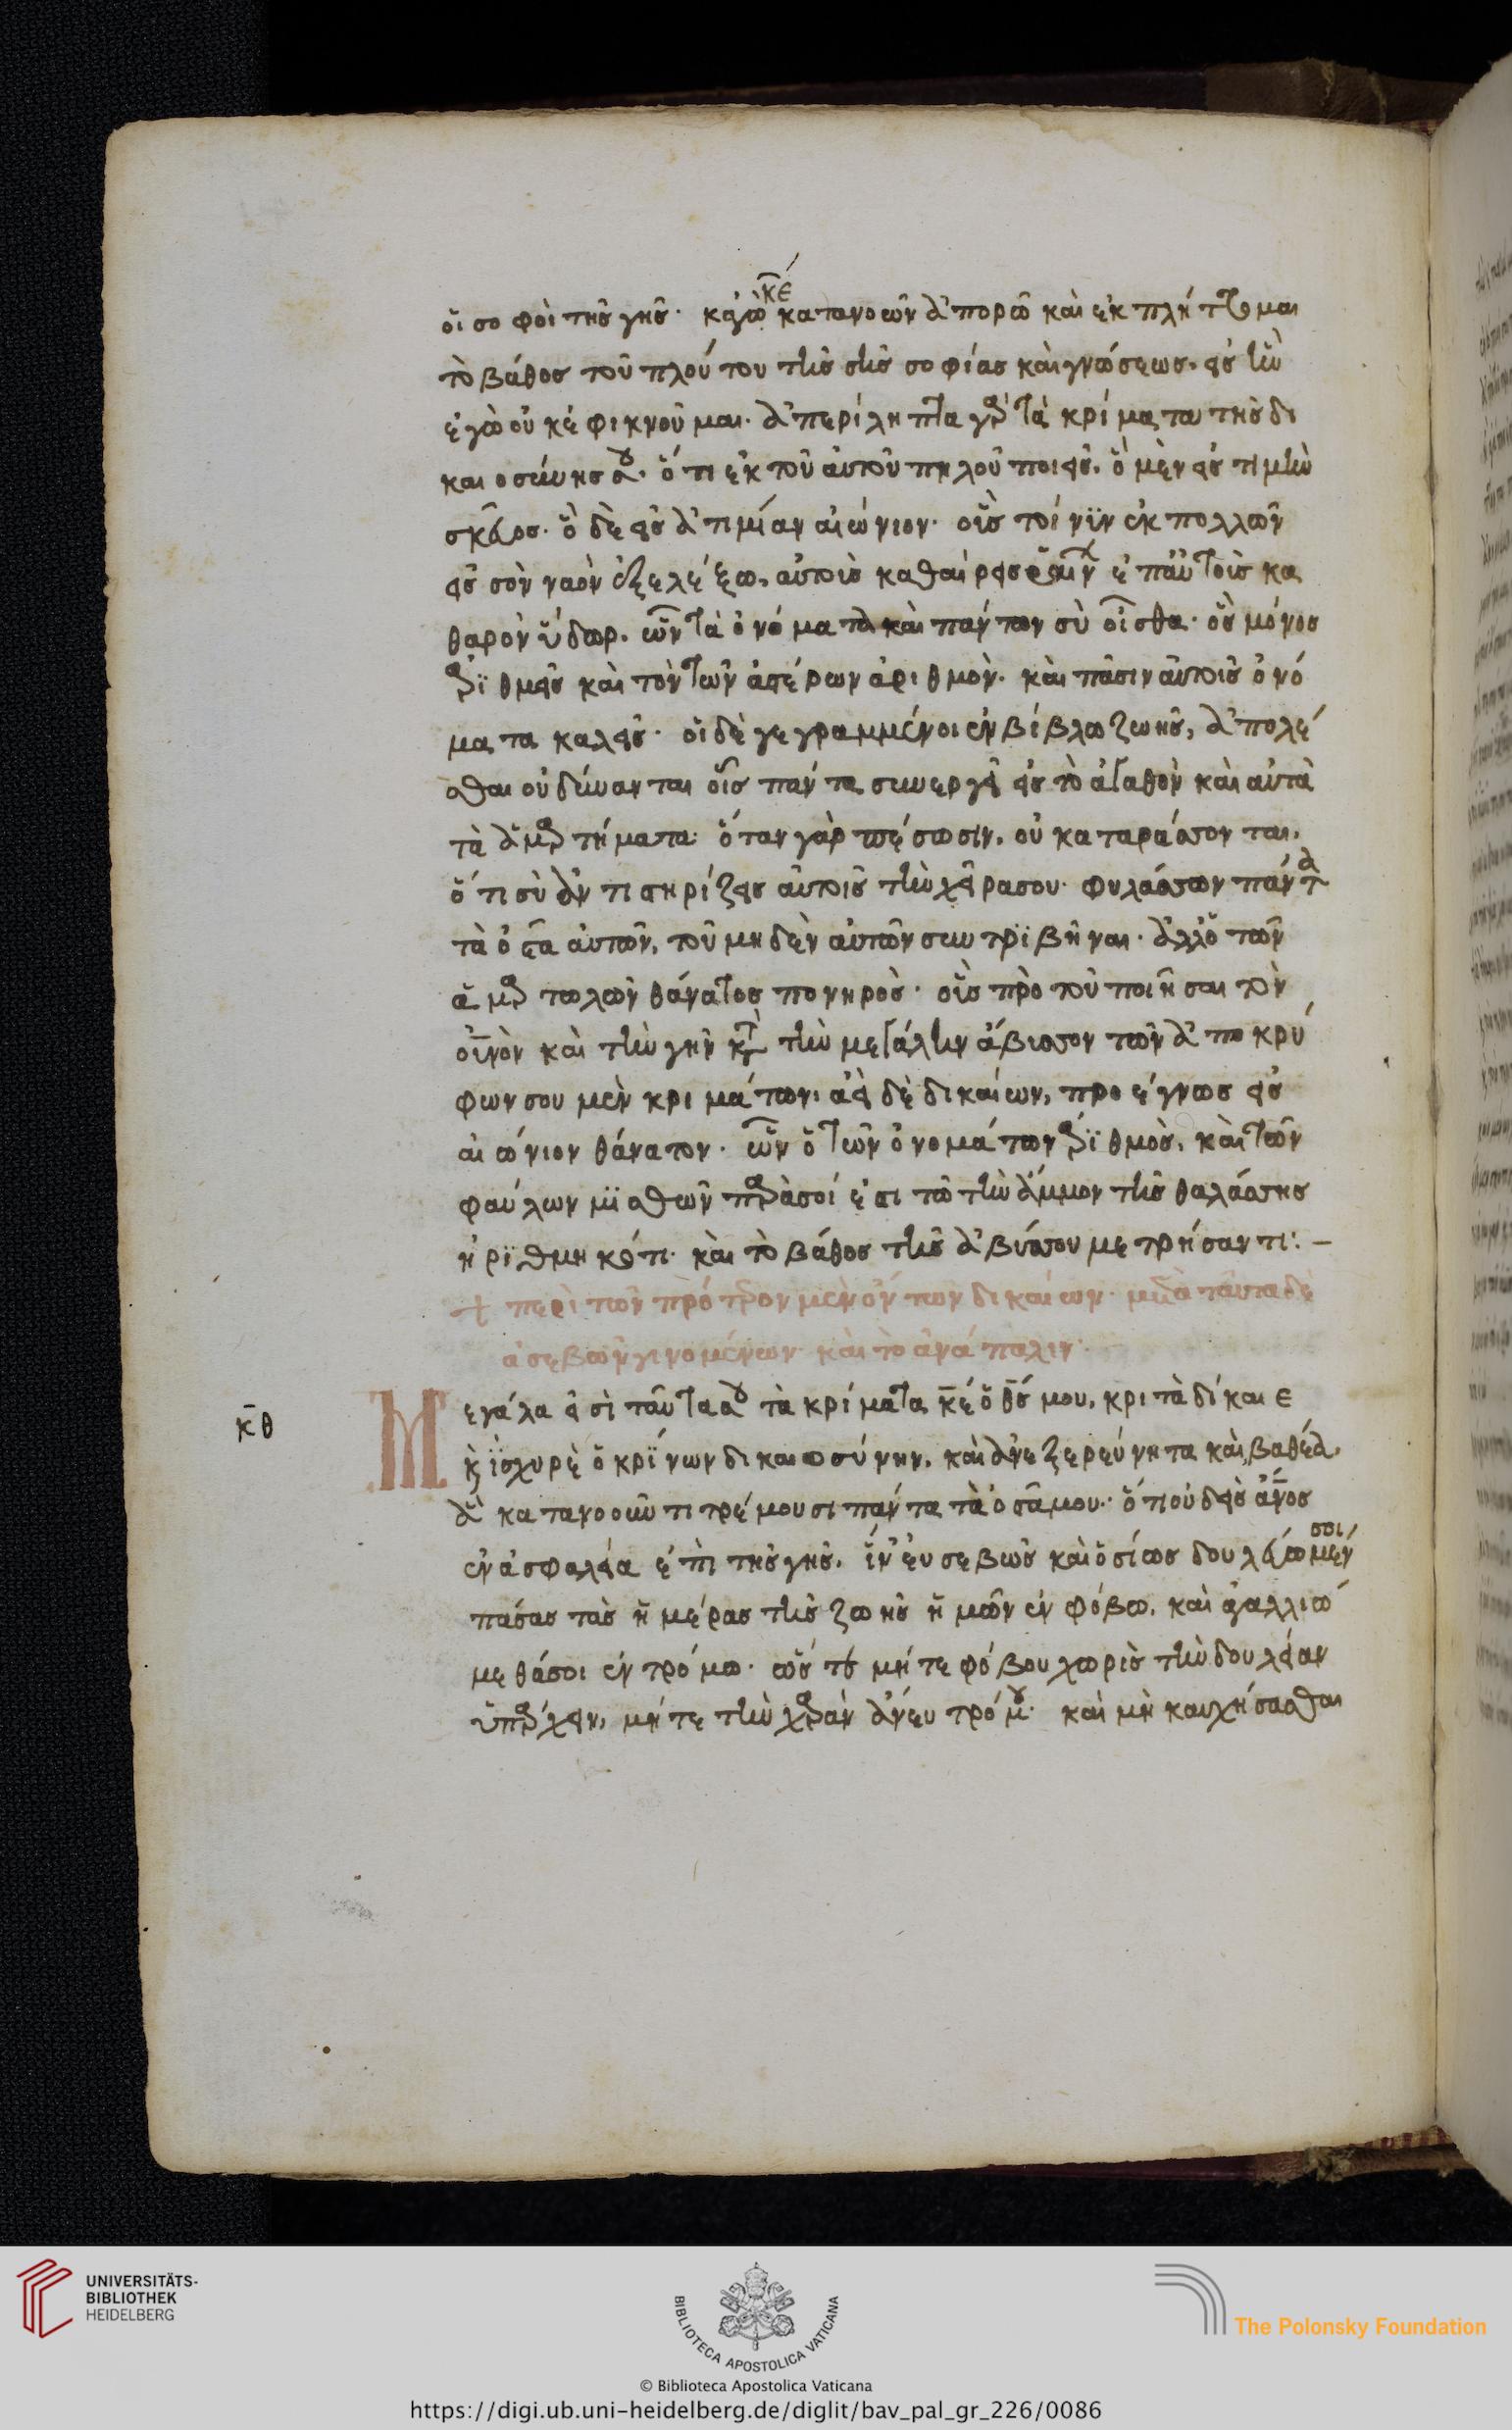 οἱ σοφοὶ τῆς γῆς· κἀγὼ κε´ κατανοῶν ἀπορῶ καὶ ἐκπλήττομαι
τὸ βάθος τοῦ πλούτου τῆς σῆς σοφίας καὶ γνώσεως, εἰς ἣν
ἐγὼ οὐκ ἐφικνοῦμαι. ἀπερίληπτα γὰρ τὰ κρίματα τῆς δι
καιοσύνης σου. ὅτι ἐκ τοῦ αὐτοῦ πηλοῦ ποιεῖς, ὃ μὲν εἰς τιμὴν
σκεῦος. ὃ δὲ εἰς ἀτιμίαν αἰώνιον. οὓς τοίνϋν ἐκ πολλῶν
εἰς σὸν ναὸν ἐξελέξω, αὐτοὺς καθαίρεις ἐπ' αὐτοὺς κα
θαρὸν ὕδωρ. ὧν τὰ ὀνόματα καὶ πάντων σὺ οἶσθα· ὃς μόνος
ἀρϊθμεῖς καὶ τὸν τῶν ἀστέρων ἀριθμὸν. καὶ πᾶσιν αὐτοῖς ὀνό
ματα καλεῖς· οἱ δὲ γεγραμμένοι ἐν βίβλω ζωῆς, ἀπολέ
σθαι οὐ δύνανται οἷς πάντα συνεργεῖ εἰς τὸ ἀγαθὸν καὶ αὐτὰ
τὰ ἁμαρτήματα· ὅταν γὰρ πέσωσιν, οὐ καταράσσονται,
ὅτι σὺ ἀντιστηρίζεις αὐτοῖς τὴν χεῖρα σου· φυλάσσων πάντα
τὰ ὀστᾶ αὐτῶν, τοῦ μηδὲν αὐτῶν συντρϊβῆναι. ἀλλ' ὁ τῶν
ἁμαρτωλῶν θάνατος πονηρὸς· οὓς πρὸ τοῦ ποιῆσαι τὸν
οὐ̅νὸν καὶ τὴν γῆν κατὰ τὴν μεγάλην ἄβυσσον τῶν ἀποκρύ
φων σου μὲν κριμάτων, ἀεὶ δὲ δικαίων, προέγνως εἰς
αἰώνιον θάνατον. ὧν ὁ τῶν ὀνομάτων ἀρϊθμὸς, καὶ τῶν
φαύλων μϊσθῶν παρὰ σοί ἐστι τῶ τὴν ἄμμον τῆς θαλάσσης
ἠρϊθμηκότι. καὶ τὸ βάθος τῆς ἀβύσσου μετρήσαντι: –
+ περὶ τῶν πρότερον μὲν ὄντων δικαίων· μετὰ ταῦτα δὲ
ἀσεβῶν γινομένων καὶ τὸ ἀνάπαλιν·
κ̅θ
Μεγάλα εἰσὶ ταῦτα σου τὰ κρίματα κ̅έ ὁ θ̅ς μου, κριτὰ δίκαιε
κ̀ ἰσχυρὲ ὁ κρίνων δικαιοσύνην, καὶ ἀνεξερεύνητα καὶ βαθέα,
ἃ κατανοοῦντι τρέμουσι πάντα τὰ ὀστᾶ μου· ὅτι οὐδεὶς ἄν̅ος
ἐν ἀσφαλεία ἐπὶ τῆς γῆς, ἵν' εὐσεβῶς καὶ ὁσίως δουλεύωμέν σοι
πάσας τὰς ἡμέρας τῆς ζωῆς ἡμῶν ἐν φόβω, καὶ ἀγαλλιώ
μεθά σοι ἐν τρόμω· ὥστε μήτε φόβου χωρὶς τὴν δουλείαν
ὑπάρχειν, μήτε τὴν χαρὰν ἄνευ τρόμου. καὶ μὴ καυχήσασθαι
UNIVERSITÄTS-
BIBLIOTHEK
HEIDELBERG
BIBLIOTECA APOSTOLICA VATICANA
The Polonsky Foundation
© Biblioteca Apostolica Vaticana
https://digi.ub.uni-heidelberg.de/diglit/bav_pal_gr_226/0086